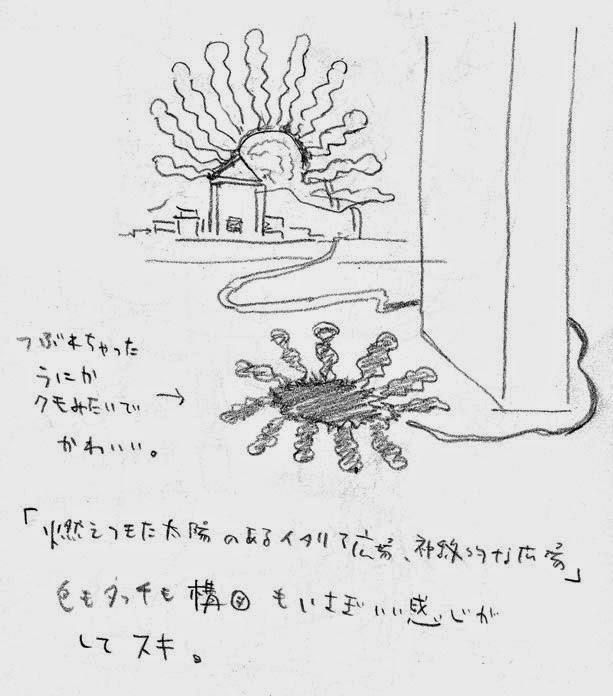 つぶれちゃった
うにか
クモみたいで
かわいい。
「燃えつきた太陽のあるイタリア広場、神秘的な広場」
色もタッチも構図もいさぎいい感じが
してスキ。